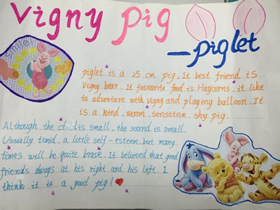 Vigny Pig
—piglet
piglet is a 25 cm pig. It best friend is
Vigny bear. It favourite food is Haycorns. it like
to adventure with vigny and playing balloon. It
is a kind, sensitive, shy pig.
Although the is small, the sound is small.
Usually timid, a little self-esteem, but many
times will be quite brave. It is believed that good
friends always at his right and his left. I
think it is a good pig!